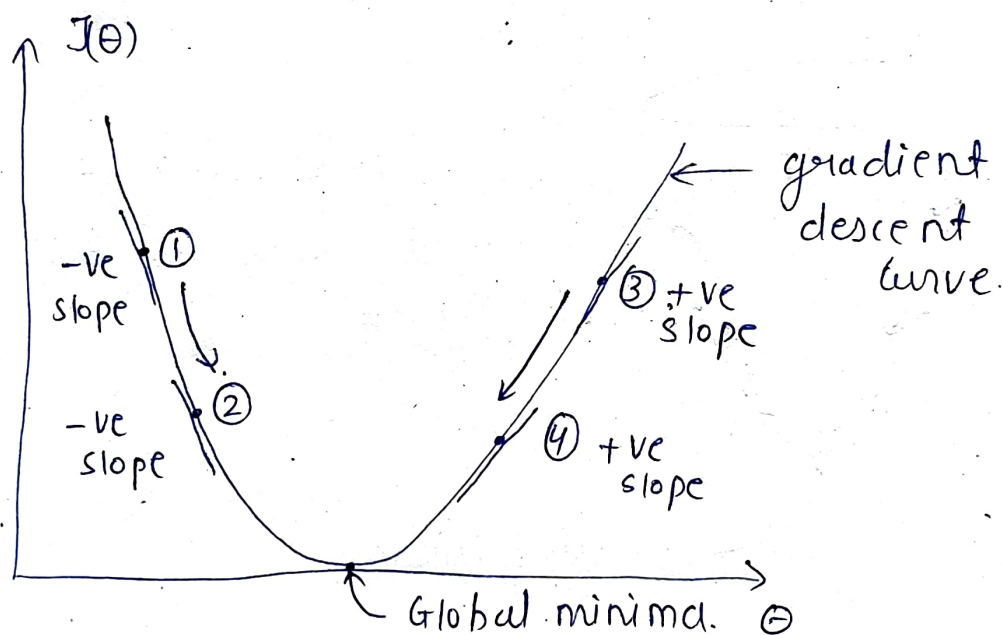 J(θ)
gradient
descent
curve.
①
-ve
slope
③ +ve
slope
②
-ve
slope
④ +ve
slope
Global minima. θ